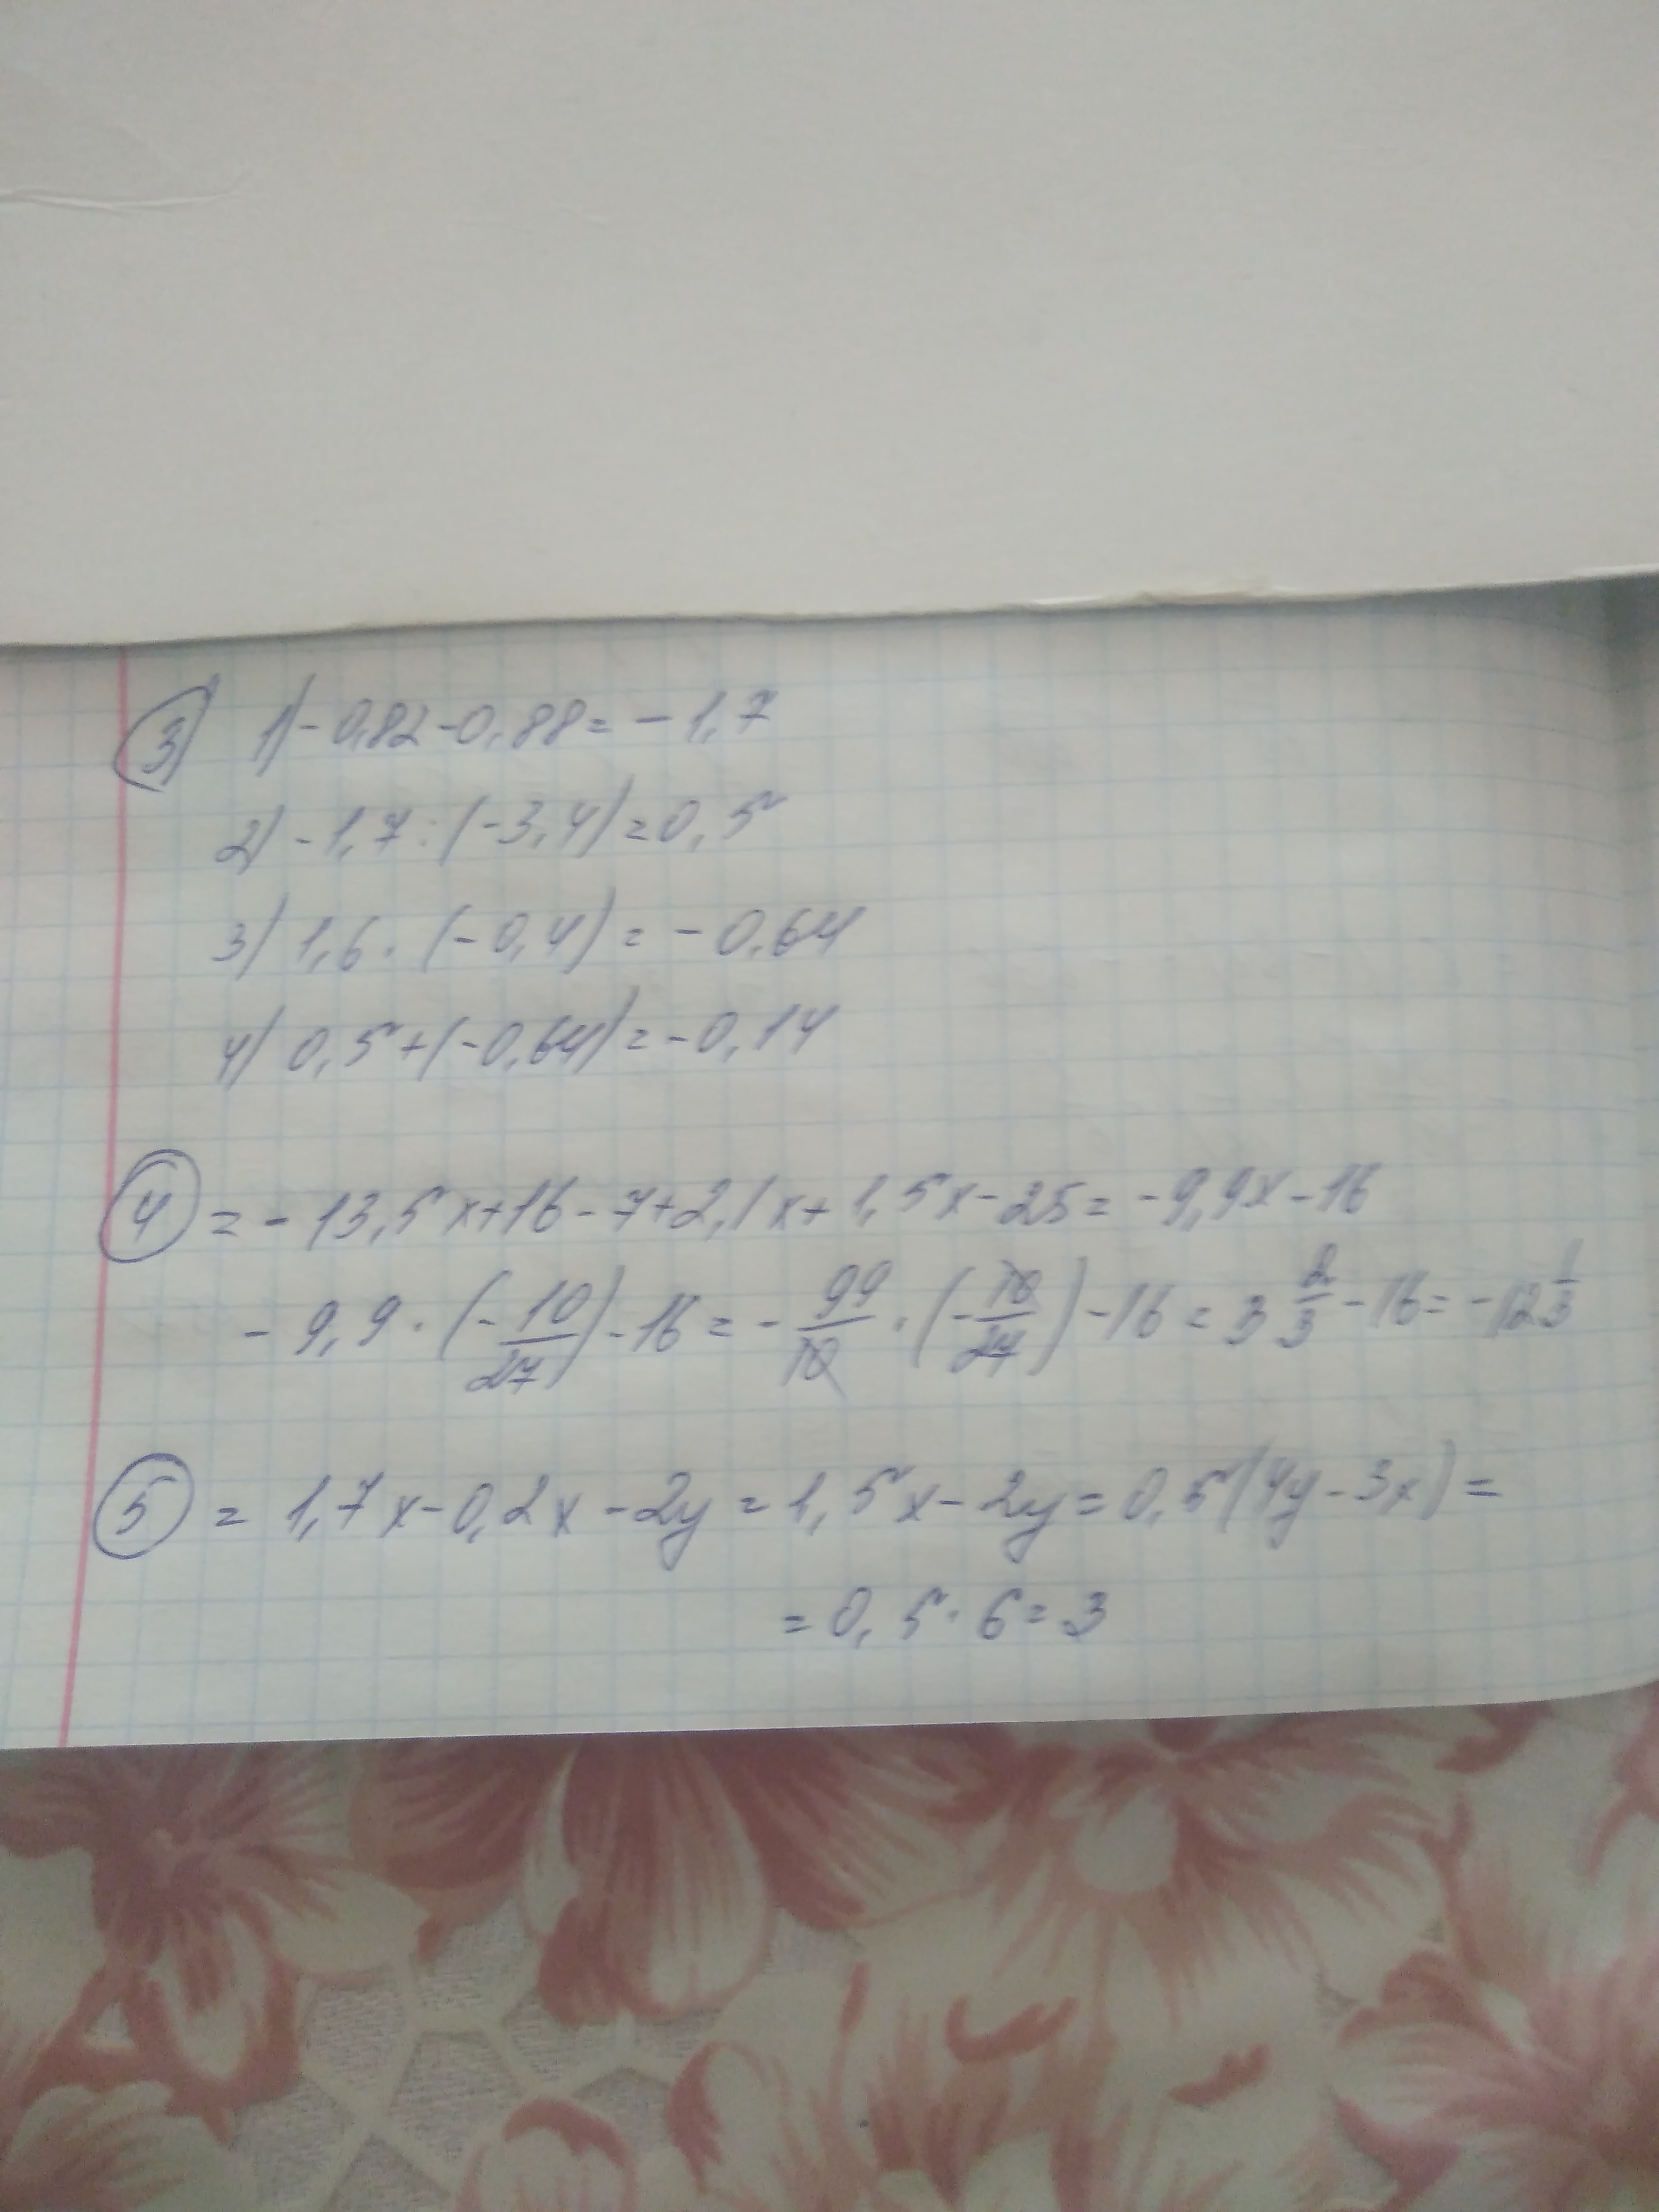 3) 1) -0,82-0,88=-1,7
2) -1,7:(-3,4)=0,5
3) 1,6·(-0,4)=-0,64
4) 0,5+(-0,64)=-0,14
4 =-13,5x+16-7+2,1x+1,5x-25=-9,9x-16
-9,9·(-10/27)-16=-99/10·(-10/27)-16=3 2/3-16=-12 1/3
5 =1,7x-0,2x-2y=1,5x-2y=0,5(4y-3x)=
=0,5·6=3